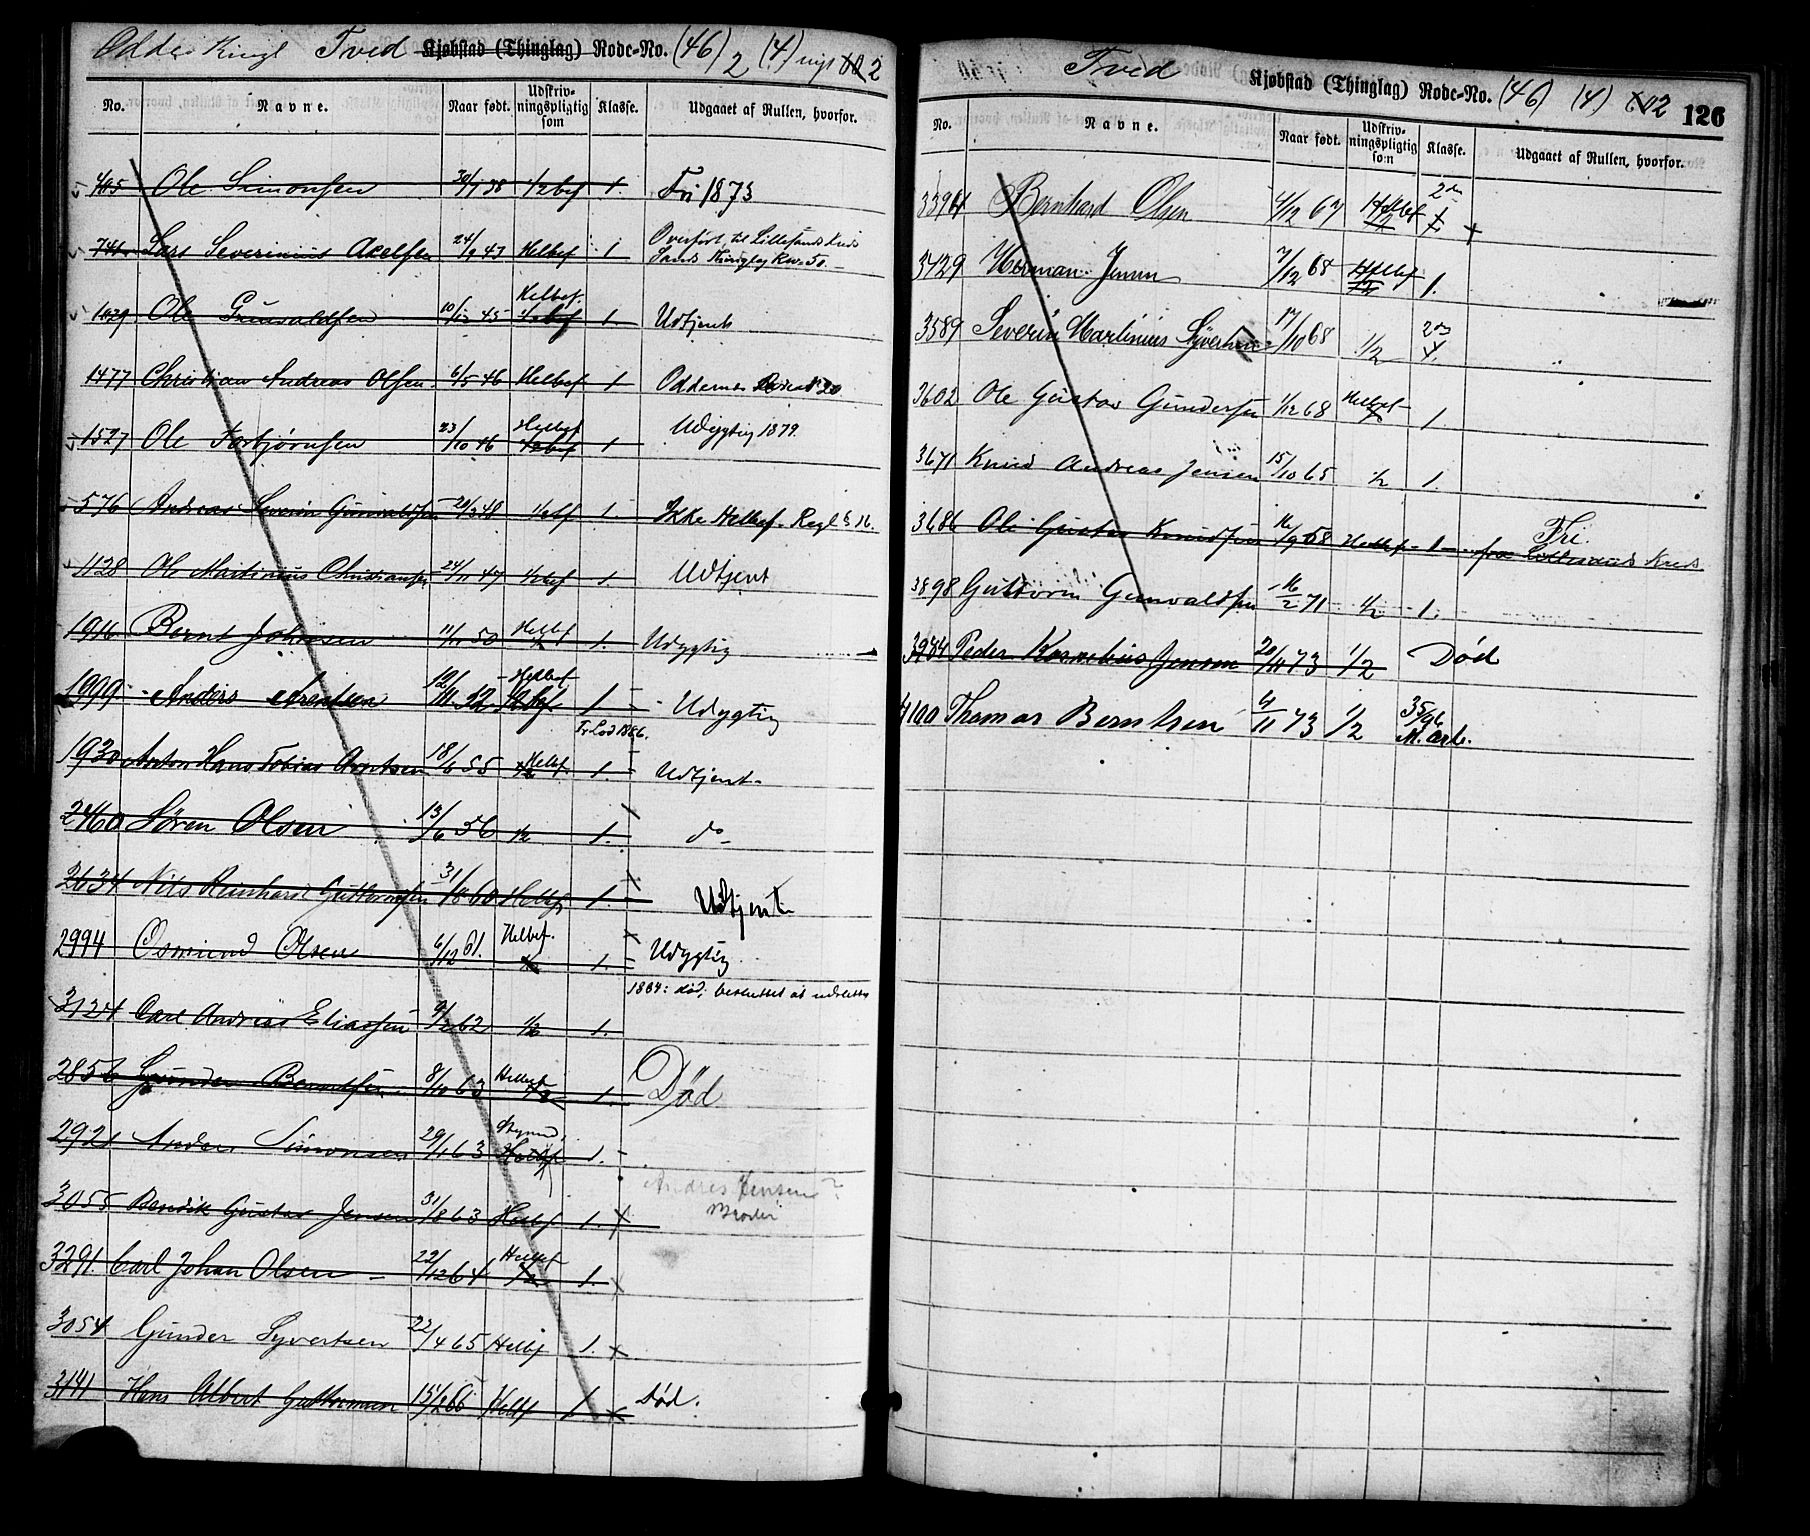 Tved Kjøbstad (Thinglag) Rode-No. (46) 2 (4) 2
No. Navne. Naar født. Udskrivningspligtig som Klasse. Udgaaet af Rullen, hvorfor.
405 Ole Simonsen 30/1 38 1/2bef 1. Fri 1873
Lars Severinius Axelsen 24/9 43 Helbef 1 Overført til Lillesands Kreds
Sands Thinglag No. 50.
Helbef.
1029 Ole Gunvaldsen 10/12 45 1/2bef 1 Udtjent
1477 Christian Andreas Olsen 6/5 46 Helbef 1 Oddernes
Helbef
1527 Ole Torbjørnsen 23/10 46 1/2bef 1 Udygtig 1879
576 Andreas Severin Gunvaldsen 1/2bf 1. Ikke Helbef. Regl § 16.
1128 Ole Martinius Christiansen 24/11 47 1/2bef 1 Udtjent
1916 Bernt Johnsen 11/11 50 Helbef 1. Udygtig
Helbef
1999 Anders Arentsen 1/2bef 1 Udygtig
1930 Anton Hans Tobias Arntsen 18/6 55 Helbef. 1 Udtjent
2460 Søren Olsen 13/6 56 1/2 1. do
2634 Nils Reinhard Guttormsen 31/10 60 Helbef 1. Udtjent
Helbef.
2994 Osmund Olsen 6/12 61. 1. Udygtig
1884: død; besluttet at udslettes
3124 Carl Andreas Eliassen 9/2 62 1/2 1.
2856 Gunder Berntsen 8/10 63 Helbef 1. Død
2921 Anders Simonsen 29/1 63 Helbef 1.
Andres Jensens?
Broder
3055 Bendik Gustav Jensen 31/8 63 Helbf 1. x
3291. Carl Johan Olsen 22/12 64 Helbef 1. x
3054 Gunder Syvertsen 22/4 65 Helbf 1. x
3141 Hans Albert Guttormsen 15/2 66 Helbf 1 x Død.
Tved Kjøbstad (Thinglag) Rode-No. (46) (4) 2 126
No. Navne. Naar født. Udskrivningspligtig som Klasse. Udgaaet af Rullen, hvorfor.
Bernhard Olsen 4/12 67 Helbef
3429 Herman Jensen 7/12 68 Helbef 1.
3589 Severin Martinius Syvertsen 17/10 68 1/2
3602 Ole Gustav Gundersen 1/12 68 Helbef 1.
3671 Knud Andreas Jensen 15/10 65 1/2 1.
3686 Ole Gustav Knudsen 16/9 68 Helbef 1 Fri.
3898 Guttorm Gunvaldsen 16/2 71 1/2 1.
3984 Peder Kornelius Jensen 20/11 73 1/2 Død
4100 Thomas Berntsen 4/11 73 1/2 35/96
M. Arb.